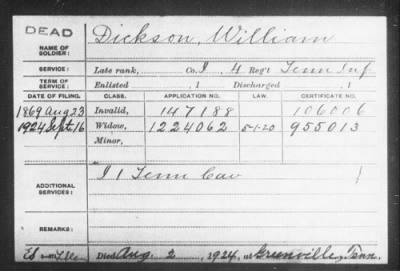 DEAD
NAME OF SOLDIER: Dickson, William
SERVICE: Late rank, Co. I, 4 Reg't Tenn Inf
TERM OF SERVICE: Enlisted , 1 Discharged , 1
DATE OF FILING. CLASS. APPLICATION NO. LAW. CERTIFICATE NO.
1869 Aug 23 Invalid, 147188 106006
1924 Sept 16 Widow, 1224062 5-1-20 955013
Minor,
ADDITIONAL SERVICES: I 1 Tenn Cav
REMARKS:
Died Aug. 2, 1924, at Greenville, Tenn.